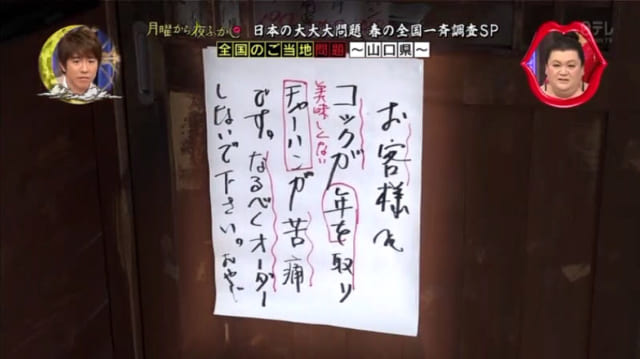 月曜から夜ふかし
日本の大大大問題 春の全国一斉調査SP
全国のご当地問題 〜山口県〜
日テレ
お客様へ
コックが年を取り
美味しくない
チャーハンが苦痛
です。なるべくオーダー
しないで下さい。おやじ